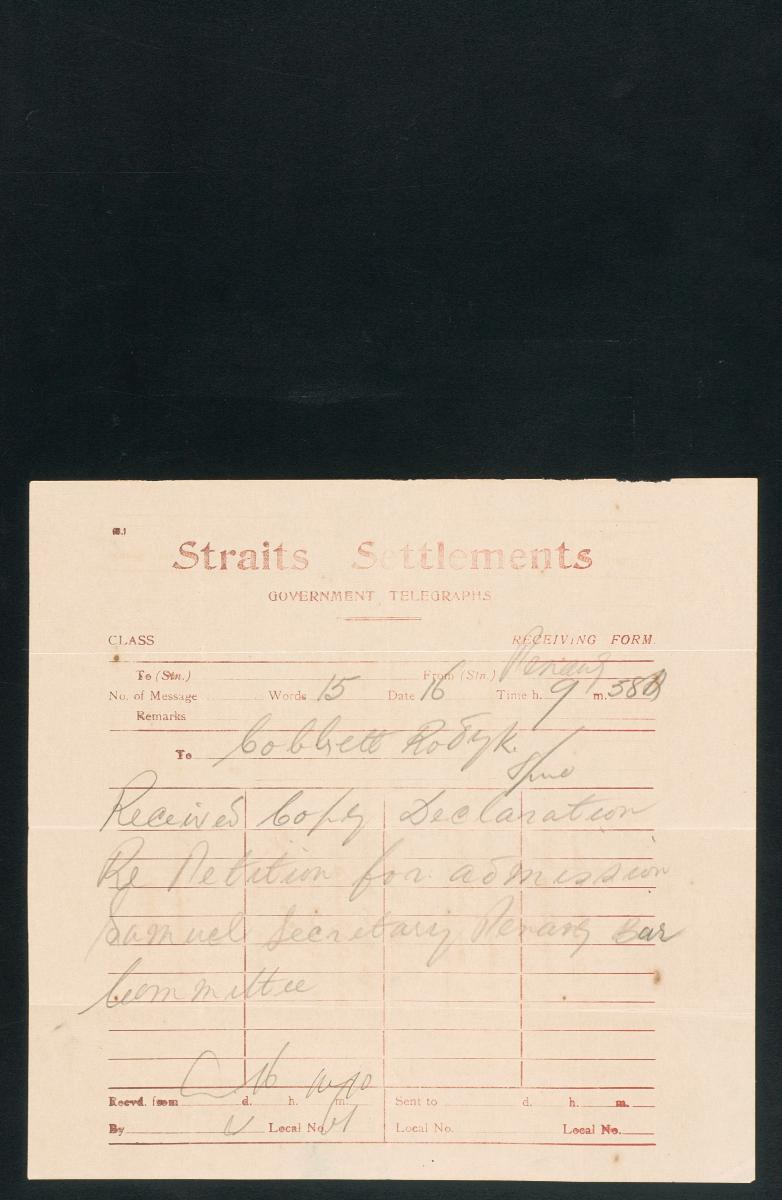 Straits Settlements
GOVERNMENT TELEGRAPHS
CLASS RECEIVING FORM.
To (Stn.) From (Stn.) Penang
No. of Message Words 15 Date 16 Time h. 9 m. 58
Remarks
To Cobbett Rodyk.
Received Copy Declaration
Re Petition for admission
Samuel Secretary Penang Bar
Committee
Recvd. from d. 16 h. m. Sent to d. h. m.
By Local No. Local No. Local No.